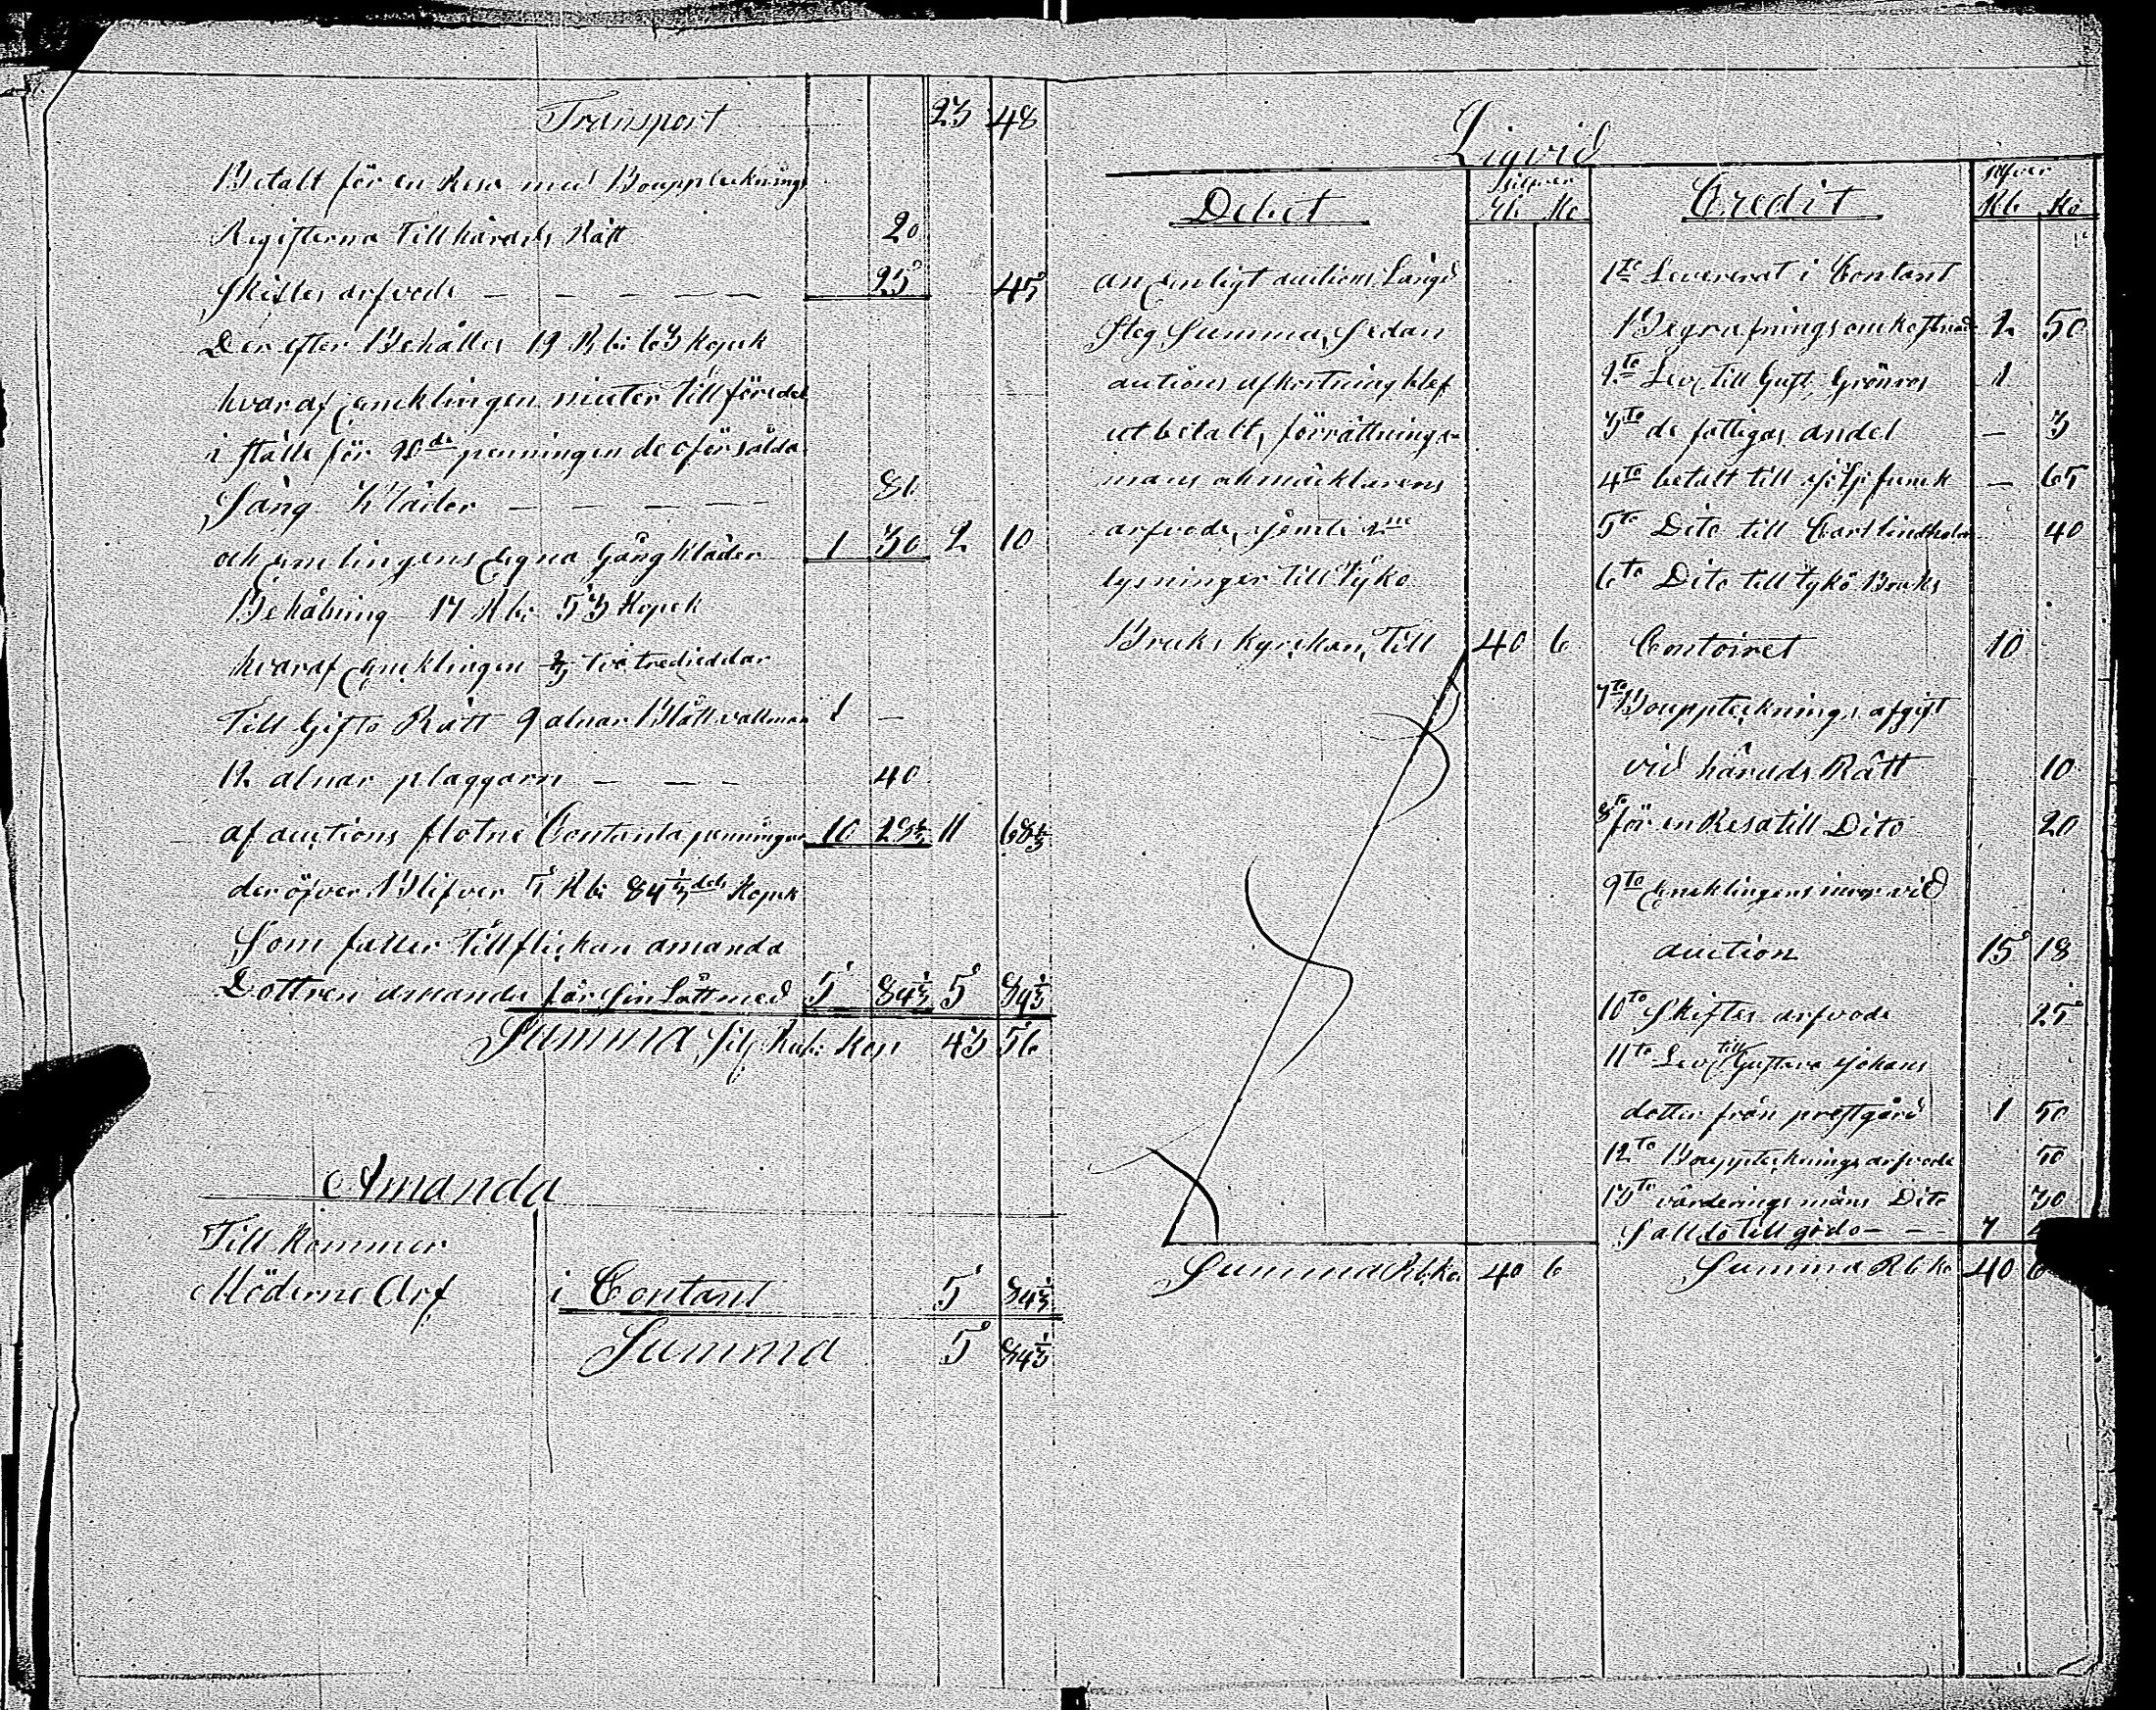 Transport 23 48
Betalt för en Resa med Bouppteknings
Registerna till härads Rätt 20
Skiftes arfvode — — — — — 25 45
Der efter Behålles 19 Rb: 63 Kopek
hvaraf Enklingen niuter till fördel
i ställe för 20de penningen de oförsålda
Säng Kläder — — — — 81
och Enklingens Egna Gång Kläder 1 30 2 10
Behålning 17 Rb: 53 Kopek
hvaraf Enklingen 2/3 två trediedelar
Till Gifto Rätt 9 alnar Blått vallmar 1 —
12 alnar plaggarn — — — 40
af auctions flotne Contanta penningar 10 28 2/3 11 68 2/3
deröfver Blifver 5 Rb: 84 1/3 dels Kopek
Som faller till flickan amanda
Dottren amanda får Sin Lott med 5 84 1/3 5 84 1/3
Summa Silf Rub: Kop 43 56
Amanda
Till Kommer
Möderne Arf i Contant 5 84 1/3
Summa 5 84 1/3
Liqvid
Debet Silfver Rb Ko
an Enligt auctions Längd
Steg Summa, Sedan
auctions afkortning blef
utbetalt, förrättnings-
mans och mäcklarens
arfvode, jämte
lysningar till Tykö
Bruks Kyrckan, Till 40 6
Summa Rb: Ko 40 6
Credit Silfver Rb Ko
1to Levererat i Contant
Begrafnings omkostnad 2 50
2to Lev: till Gust: Grönros 1
3to de fattigas andel — 3
4to betalt till funck — 65
5to Dito till Carl Lindholm 40
6to Dito till Tykö Bruks
Contoiret 10
7to Bouppteknings afgift
vid härads Rätt 10
8to för en Resa till Dito 20
9to Enklingens inrop vid
auction 15 18
10to Skiftes arfvode 25
11to Lev: till Gustava Johans
dotter från prestgård 1 50
12to Bouppteknings arfvode 50
13to värderings mäns Dito 30
Saldo till godo — — 7
Summa Rb: Ko 40 6